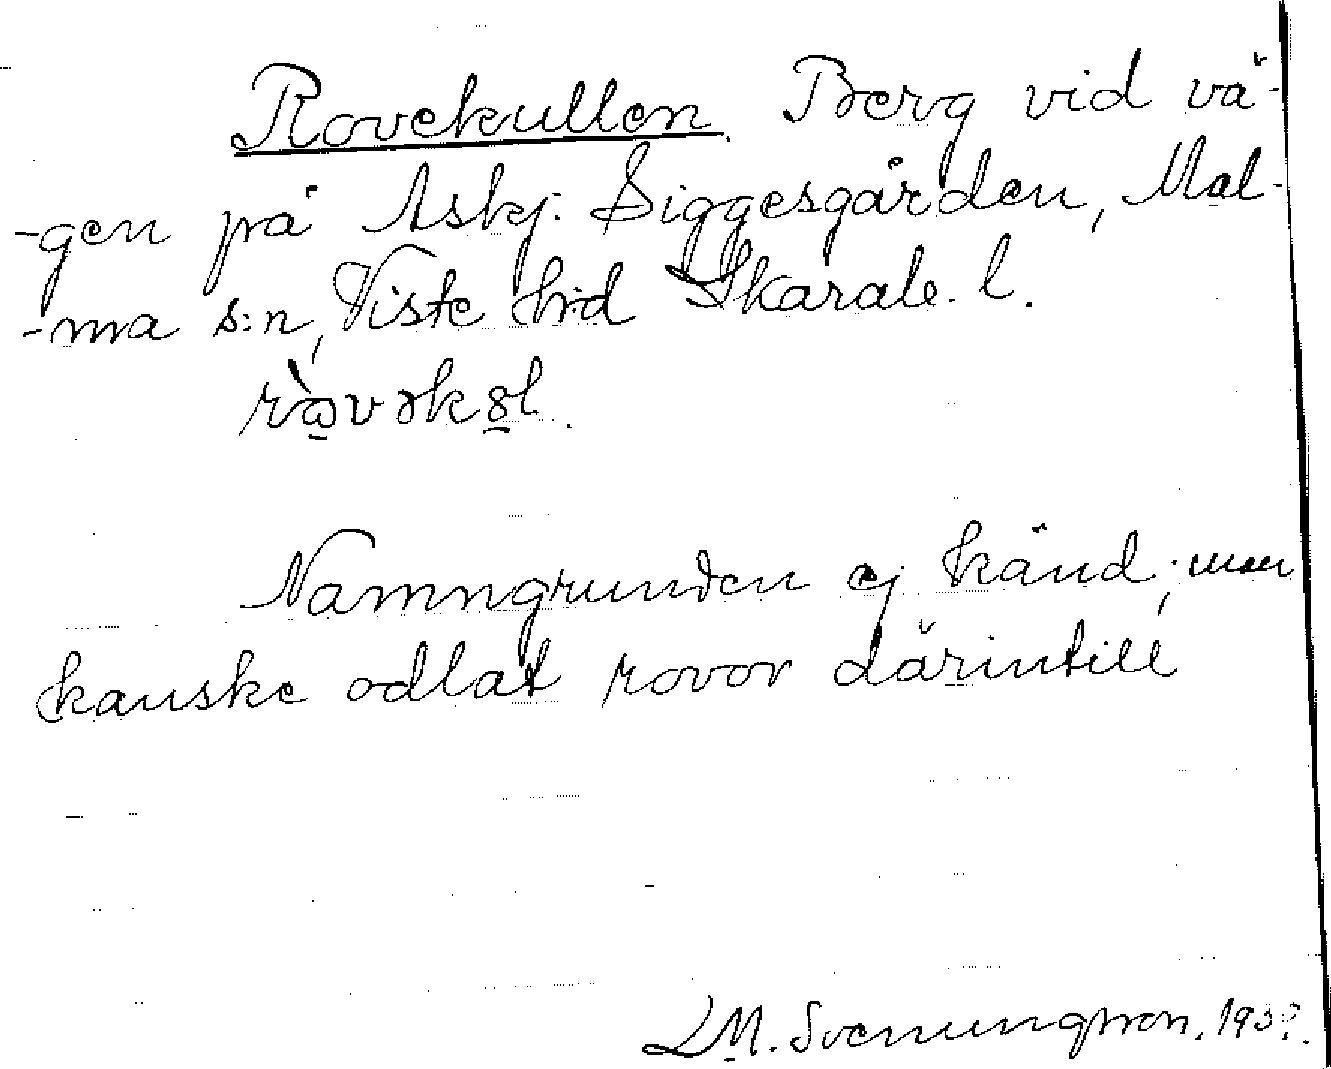 Rovekullen. Berg vid vä-
-gen på Askj. Siggesgården, Mal-
-ma s:n, Viste hd Skarab. l.
Namngrunden ej känd; man
kanske odlat rovor därintill
D.M. Svenungsson.